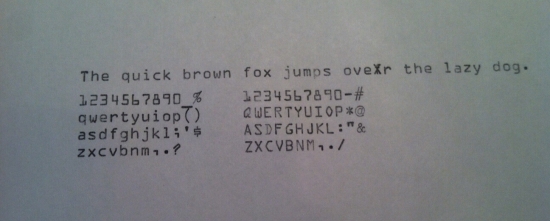 The quick brown fox jumps oveXr the lazy dog.
1234567890_% 1234567890-#
qwertyuiop() QWERTYUIOP*@
asdfghjkl;'$ ASDFGHJKL:"&
zxcvbnm,.? ZXCVBNM,./